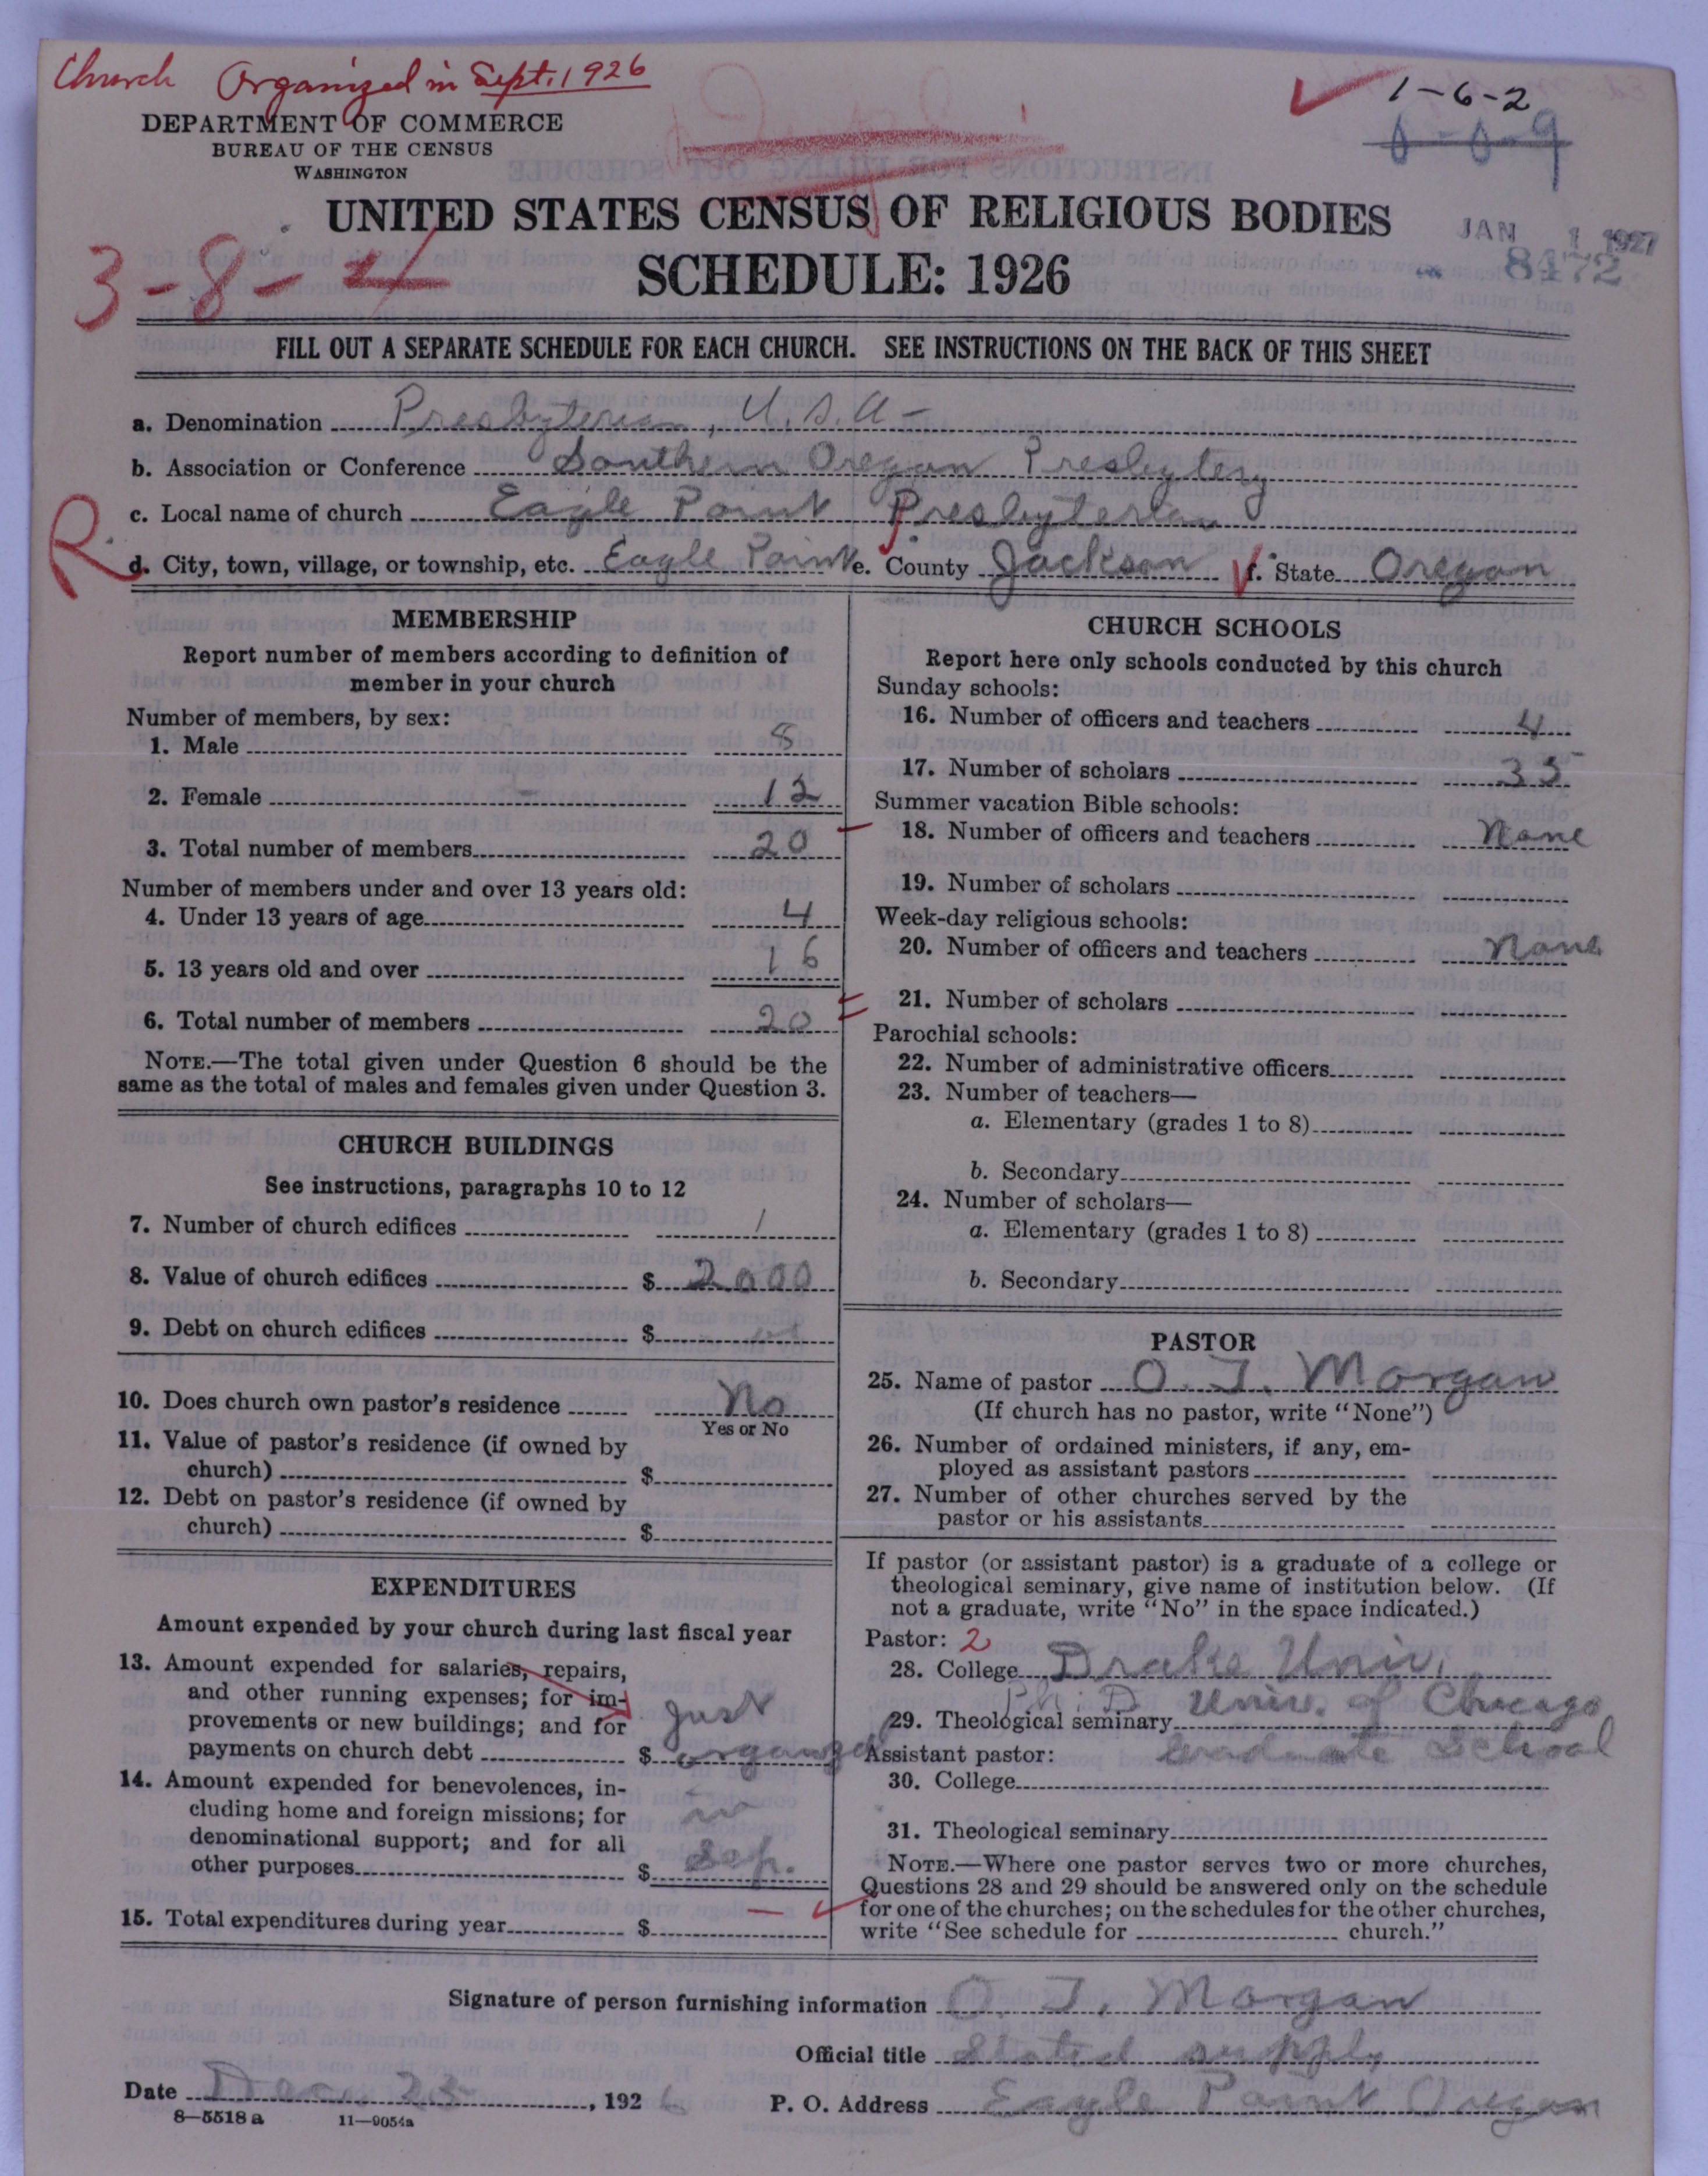 Church Organized in Sept. 1926
1-6-2
0-0-9
DEPARTMENT OF COMMERCE
BUREAU OF THE CENSUS
WASHINGTON
UNITED STATES CENSUS OF RELIGIOUS BODIES
SCHEDULE: 1926
JAN 1 1927
8472
3-8-4
FILL OUT A SEPARATE SCHEDULE FOR EACH CHURCH. SEE INSTRUCTIONS ON THE BACK OF THIS SHEET
a. Denomination Presbyterian, U.S.A-
b. Association or Conference Southern Oregon Presbytery
c. Local name of church Eagle Point Presbyterian
R
d. City, town, village, or township, etc. Eagle Point e. County Jackson f. State Oregon
MEMBERSHIP
Report number of members according to definition of
member in your church
Number of members, by sex:
1. Male 8
2. Female 12
3. Total number of members 20
Number of members under and over 13 years old:
4. Under 13 years of age 4
5. 13 years old and over 16
6. Total number of members 20
NOTE.—The total given under Question 6 should be the
same as the total of males and females given under Question 3.
CHURCH BUILDINGS
See instructions, paragraphs 10 to 12
7. Number of church edifices 1
8. Value of church edifices $ 2000
9. Debt on church edifices $
10. Does church own pastor's residence No
Yes or No
11. Value of pastor's residence (if owned by
church) $
12. Debt on pastor's residence (if owned by
church) $
EXPENDITURES
Amount expended by your church during last fiscal year
13. Amount expended for salaries, repairs,
and other running expenses; for im-
provements or new buildings; and for Just
payments on church debt $ organized
14. Amount expended for benevolences, in-
cluding home and foreign missions; for in
denominational support; and for all
other purposes $ Sep.
15. Total expenditures during year $ —
CHURCH SCHOOLS
Report here only schools conducted by this church
Sunday schools:
16. Number of officers and teachers 4
17. Number of scholars 35
Summer vacation Bible schools:
18. Number of officers and teachers None
19. Number of scholars
Week-day religious schools:
20. Number of officers and teachers None
21. Number of scholars
Parochial schools:
22. Number of administrative officers
23. Number of teachers—
a. Elementary (grades 1 to 8)
b. Secondary
24. Number of scholars—
a. Elementary (grades 1 to 8)
b. Secondary
PASTOR
25. Name of pastor O. J. Morgan
(If church has no pastor, write "None")
26. Number of ordained ministers, if any, em-
ployed as assistant pastors
27. Number of other churches served by the
pastor or his assistants
If pastor (or assistant pastor) is a graduate of a college or
theological seminary, give name of institution below. (If
not a graduate, write "No" in the space indicated.)
Pastor: 2
28. College Drake Univ.
Ph. D Univ. of Chicago
29. Theological seminary
Assistant pastor: Graduate School
30. College
31. Theological seminary
NOTE.—Where one pastor serves two or more churches,
Questions 28 and 29 should be answered only on the schedule
for one of the churches; on the schedules for the other churches,
write "See schedule for church."
Signature of person furnishing information O. J. Morgan
Official title Stated supply
Date Dec. 23, 1926 P. O. Address Eagle Point Oregon
8—5518 a 11—9054a